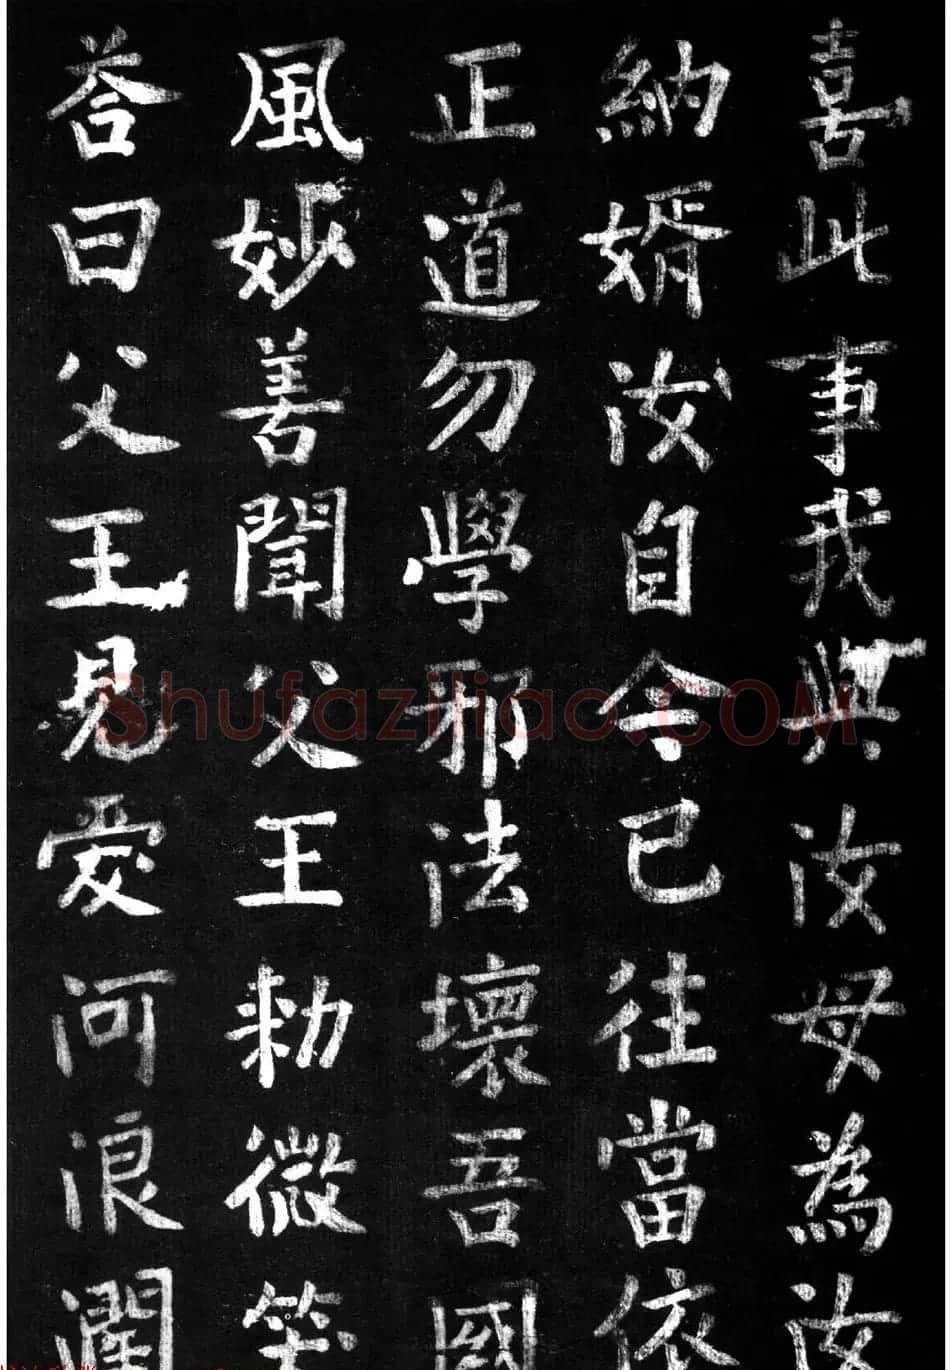 喜此事我與汝母為汝
納婿汝自今已往當依
正道勿學邪法壞吾國
風妙善聞父王勑微笑
荅曰父王見愛河浪濶
Shufaziliao.COM